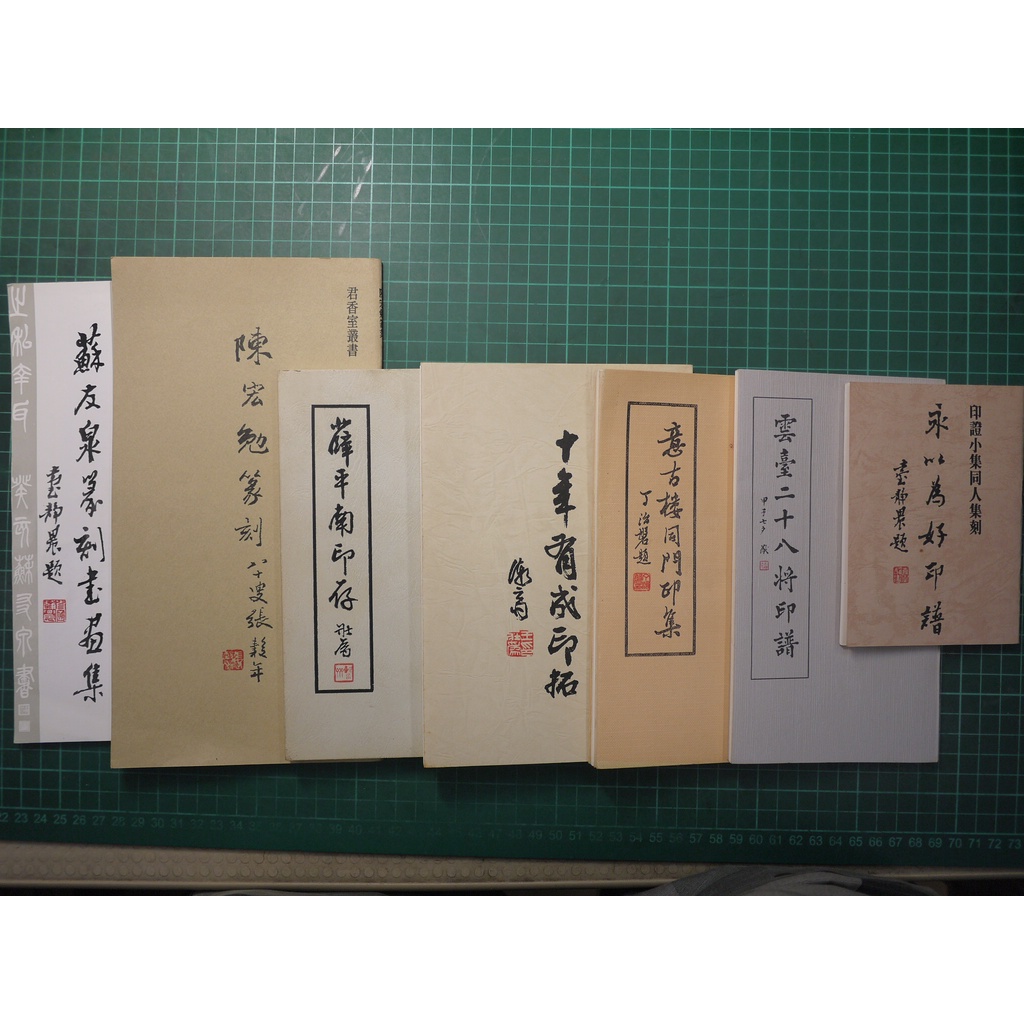 蘇友泉篆刻書畫集
臺靜農題
君香室叢書
陳宏勉篆刻
八十叟張穀年
薛平南印存
壯為
十年有成印拓
意古楼同門印集
丁治磐題
雲臺二十八將印譜
甲子七夕
印證小集同人集刻
永以為好印譜
臺靜農題
22 23 24 25 26 27 28 29 30 31 32 33 34 35
52 53 54 55 56 57 58 59 60 61 62 63 64 65 66 67 68 69 70 71 72 73